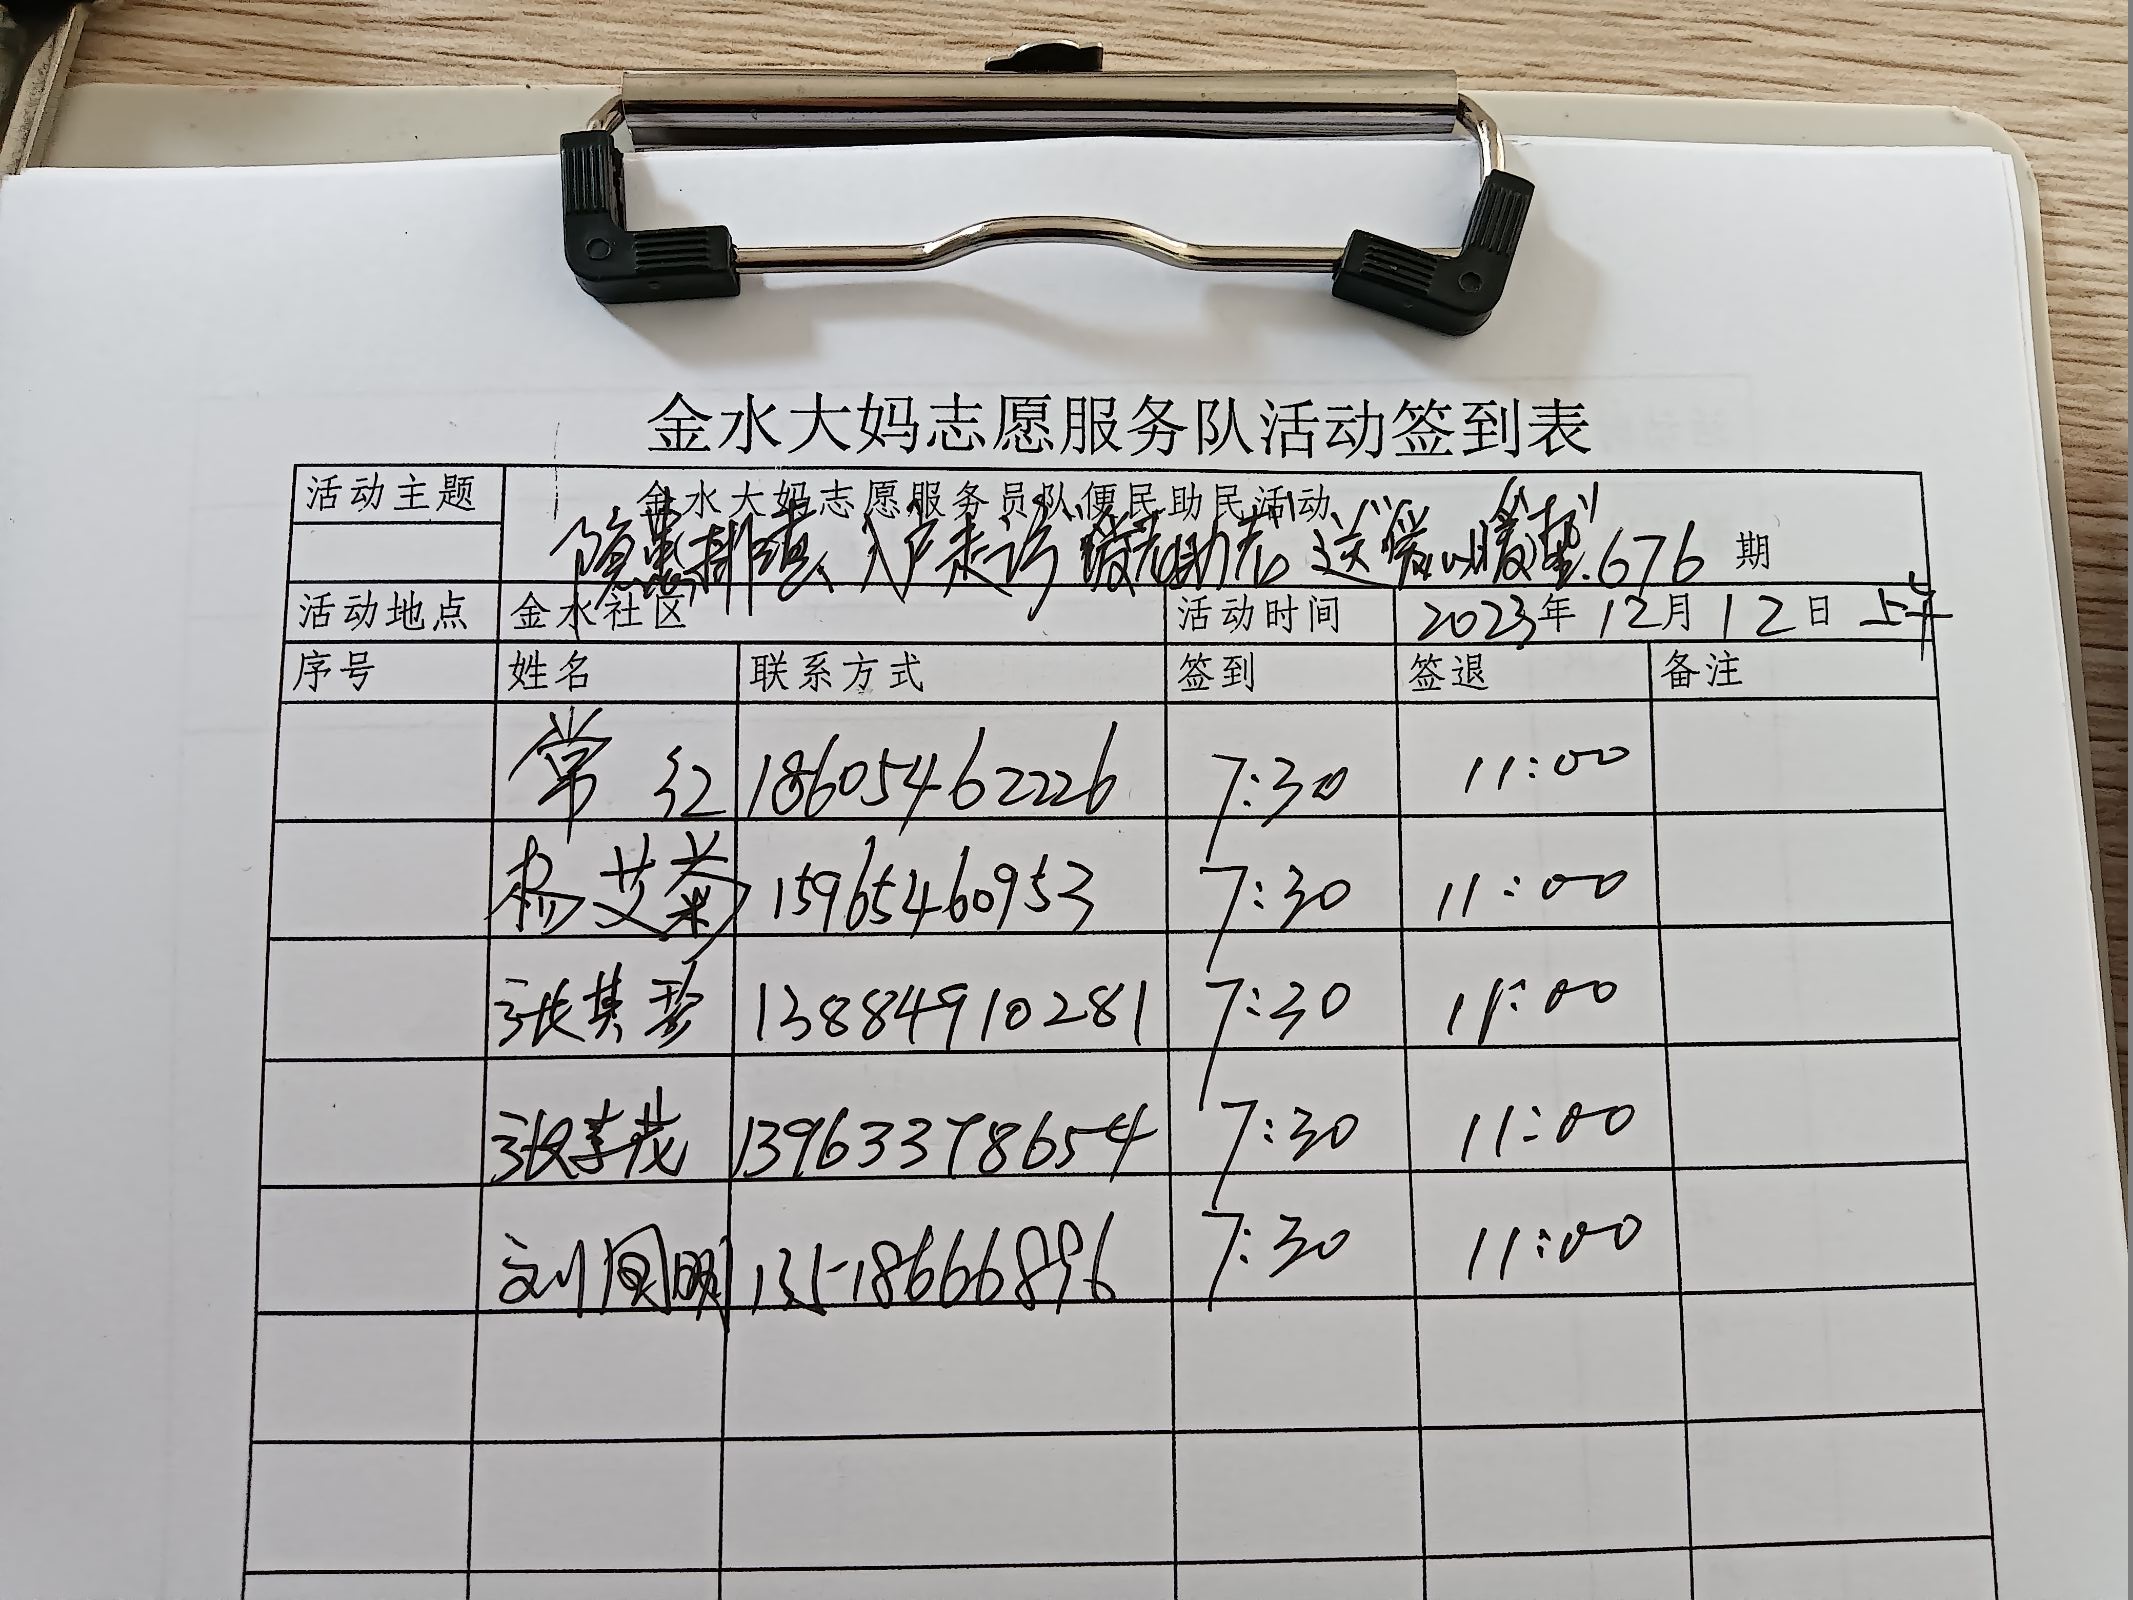 金水大妈志愿服务队活动签到表
活动主题 金水大妈志愿服务员队便民助民活动
隐患排查、入户走访 爱老助老 送"爱心暖垫".676 期
活动地点 金水社区 活动时间 2023年 12月 12日 上午
序号 姓名 联系方式 签到 签退 备注
常红 18605462226 7:30 11:00
杨艾菊 15965460953 7:30 11:00
张其珍 13884910281 7:30 11:00
张孝茂 13963378654 7:30 11:00
刘同明 13518666896 7:30 11:00